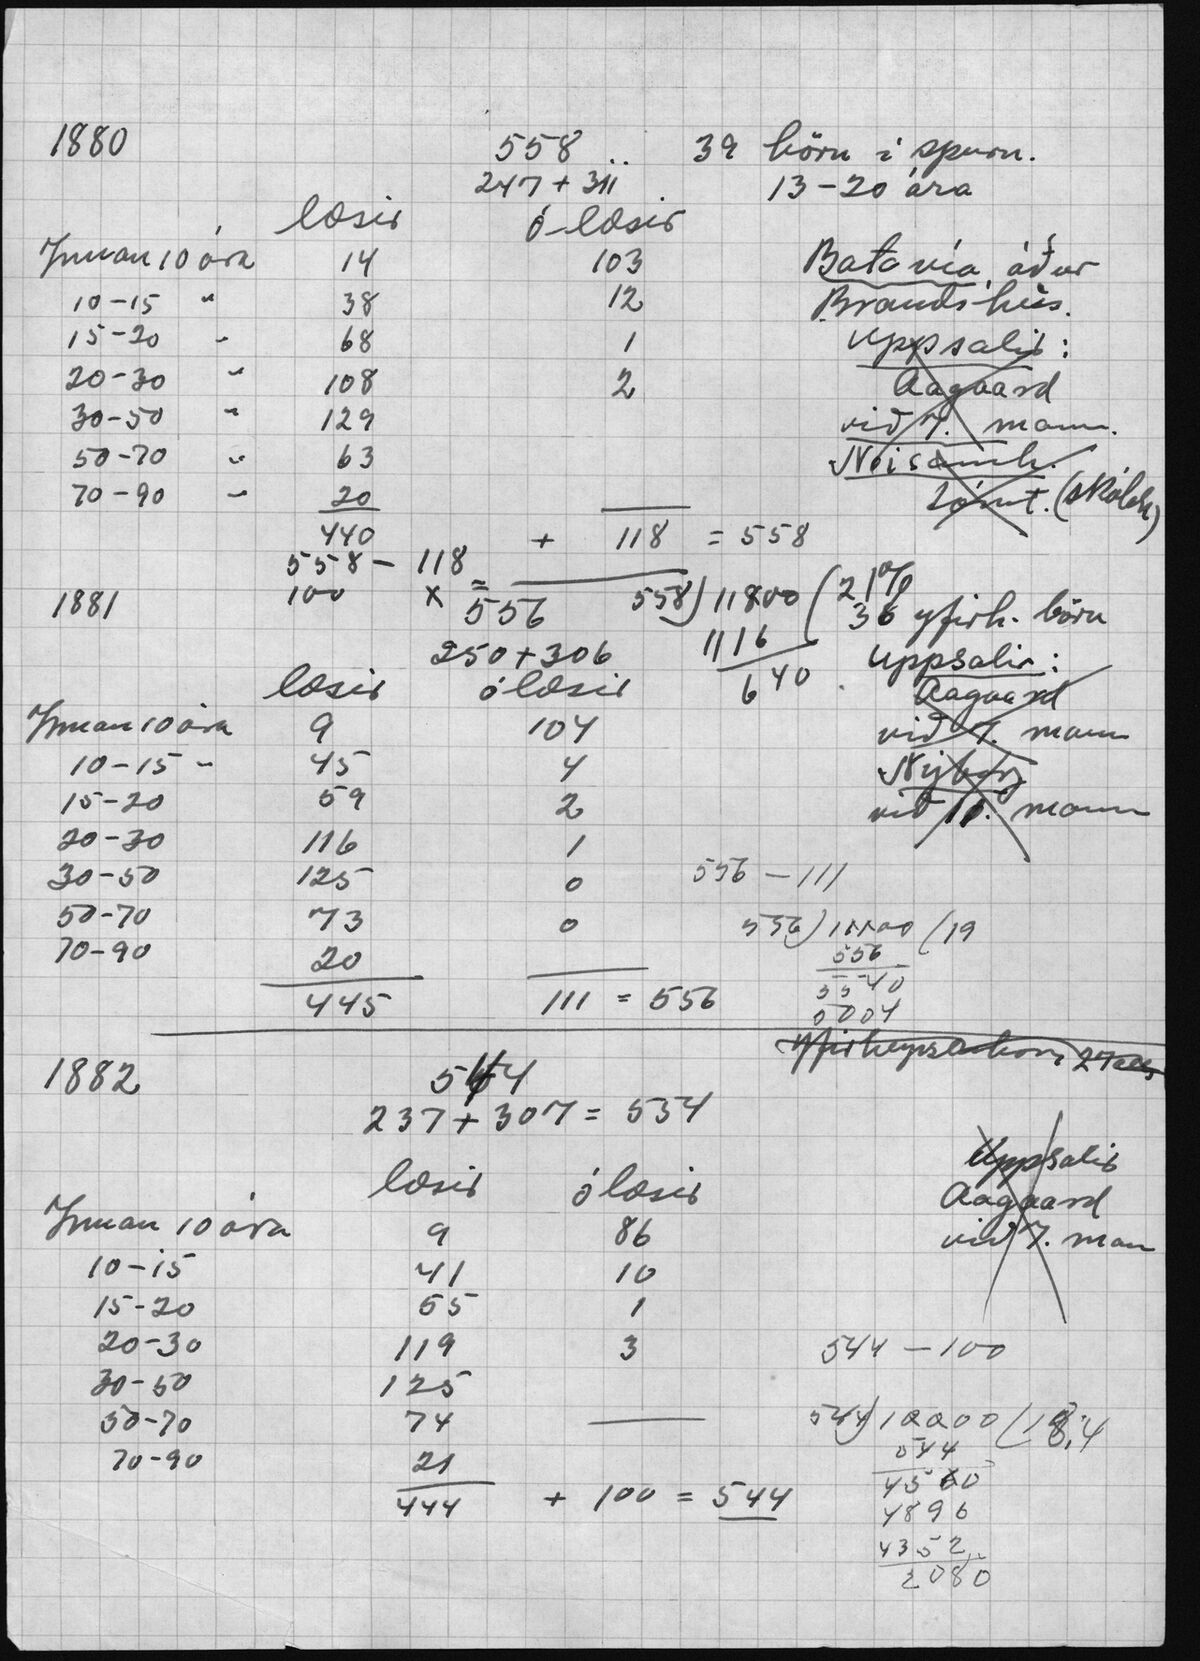 1880 558 39 börn í spurn.
247 + 311 13-20 ára
læsir ó-læsir
Innan 10 ára 14 103 Batavía, áður
10-15 " 38 12 Brandshús.
15-20 " 68 1 Uppsalir:
20-30 " 108 2 Aagaard
30-50 " 129 við 7. mann.
50-70 " 63
70-90 " 20 (skólah)
440 + 118 = 558
558 - 118
100 x = 558)11800(21%
1881 556 1116 36 yfirh. börn
250+306 640 Uppsalir:
læsir ólæsir Aagaard
Innan 10 ára 9 104 við 7. mann
10-15 " 45 4 Nýborg
15-20 59 2 við 11. mann
20-30 116 1
30-50 125 0 556 - 111
50-70 73 0 556)11100(19
70-90 20 556
445 111 = 556 5540
5004
1882 544
237 + 307 = 534
Uppsalir
læsir ólæsir Aagaard
Innan 10 ára 9 86 við 7. man
10-15 41 10
15-20 55 1
20-30 119 3 544 - 100
30-50 125
50-70 74 544)10000(18,4
70-90 21 544
444 + 100 = 544 4560
4896
4352
2080